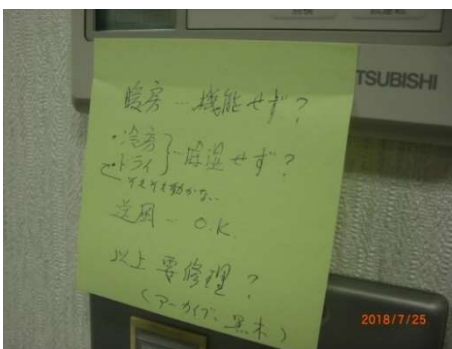 TSUBISHI
暖房 - 機能せず?
・冷房
・ドライ } 除湿せず?
そもそも動かない
送風 - O.K.
以上 要修理?
(アーカイブ、黒木)
2018/7/25